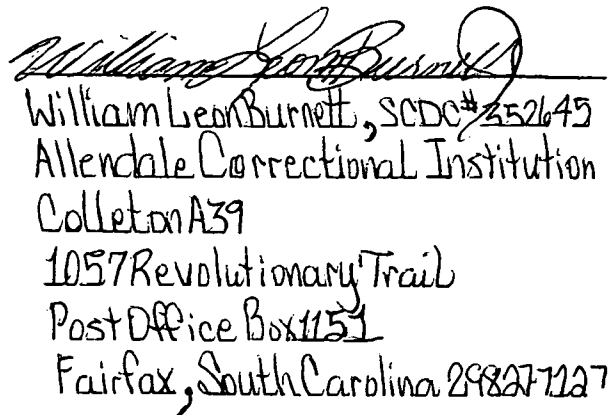 William Leon Burnett
William Leon Burnett, SCDC#352645
Allendale Correctional Institution
Colleton A39
1057 Revolutionary Trail
Post Office Box 1151
Fairfax, South Carolina 298277127